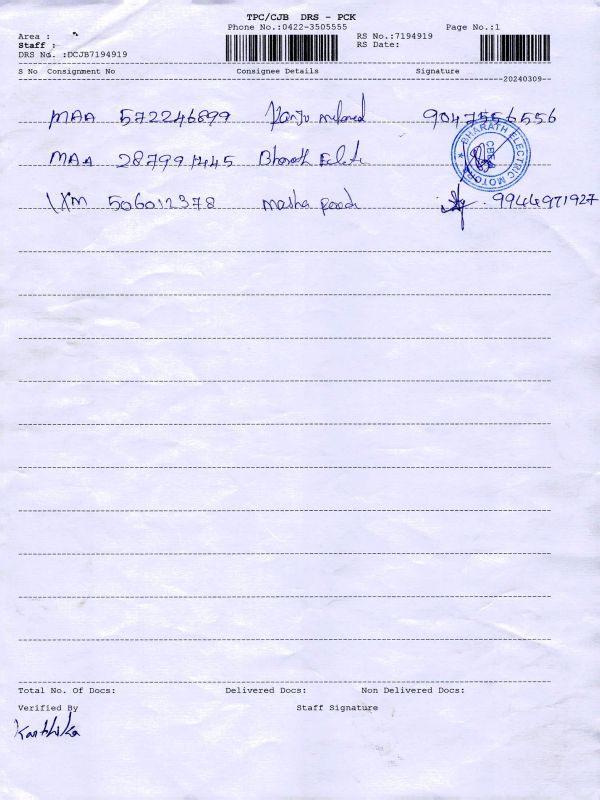 TPC/CJB DRS - PCK
Phone No.:0422-3505555 Page No.:1
Area : RS No.:7194919
Staff : RS Date:
DRS No. :DCJB7194919
S No Consignment No Consignee Details Signature
20240309
MAA 572246899 9047556556
MAA 287991445 Bharath
BHARATH ELECTRIC MOTORS
CBE
IXM 506012378 masha 9944971927
Total No. Of Docs: Delivered Docs: Non Delivered Docs:
Verified By Staff Signature
Karthika